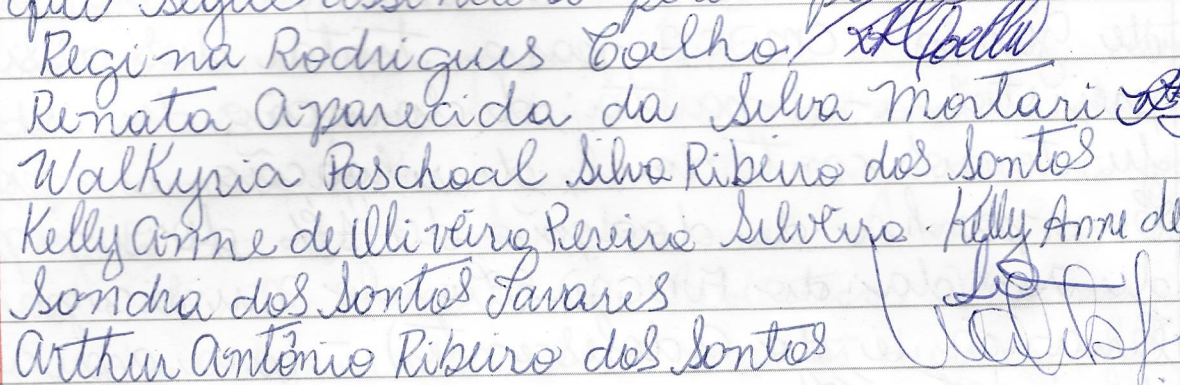 que segue assinada por
Regina Rodrigues Coelho / RRCoelho
Renata Aparecida da Silva Mortari
Walkyria Paschoal Silva Ribeiro dos Santos
Kelly Anne de Oliveira Pereira Silveira Kelly Anne de
Sandra dos Santos Tavares
Arthur Antônio Ribeiro dos Santos